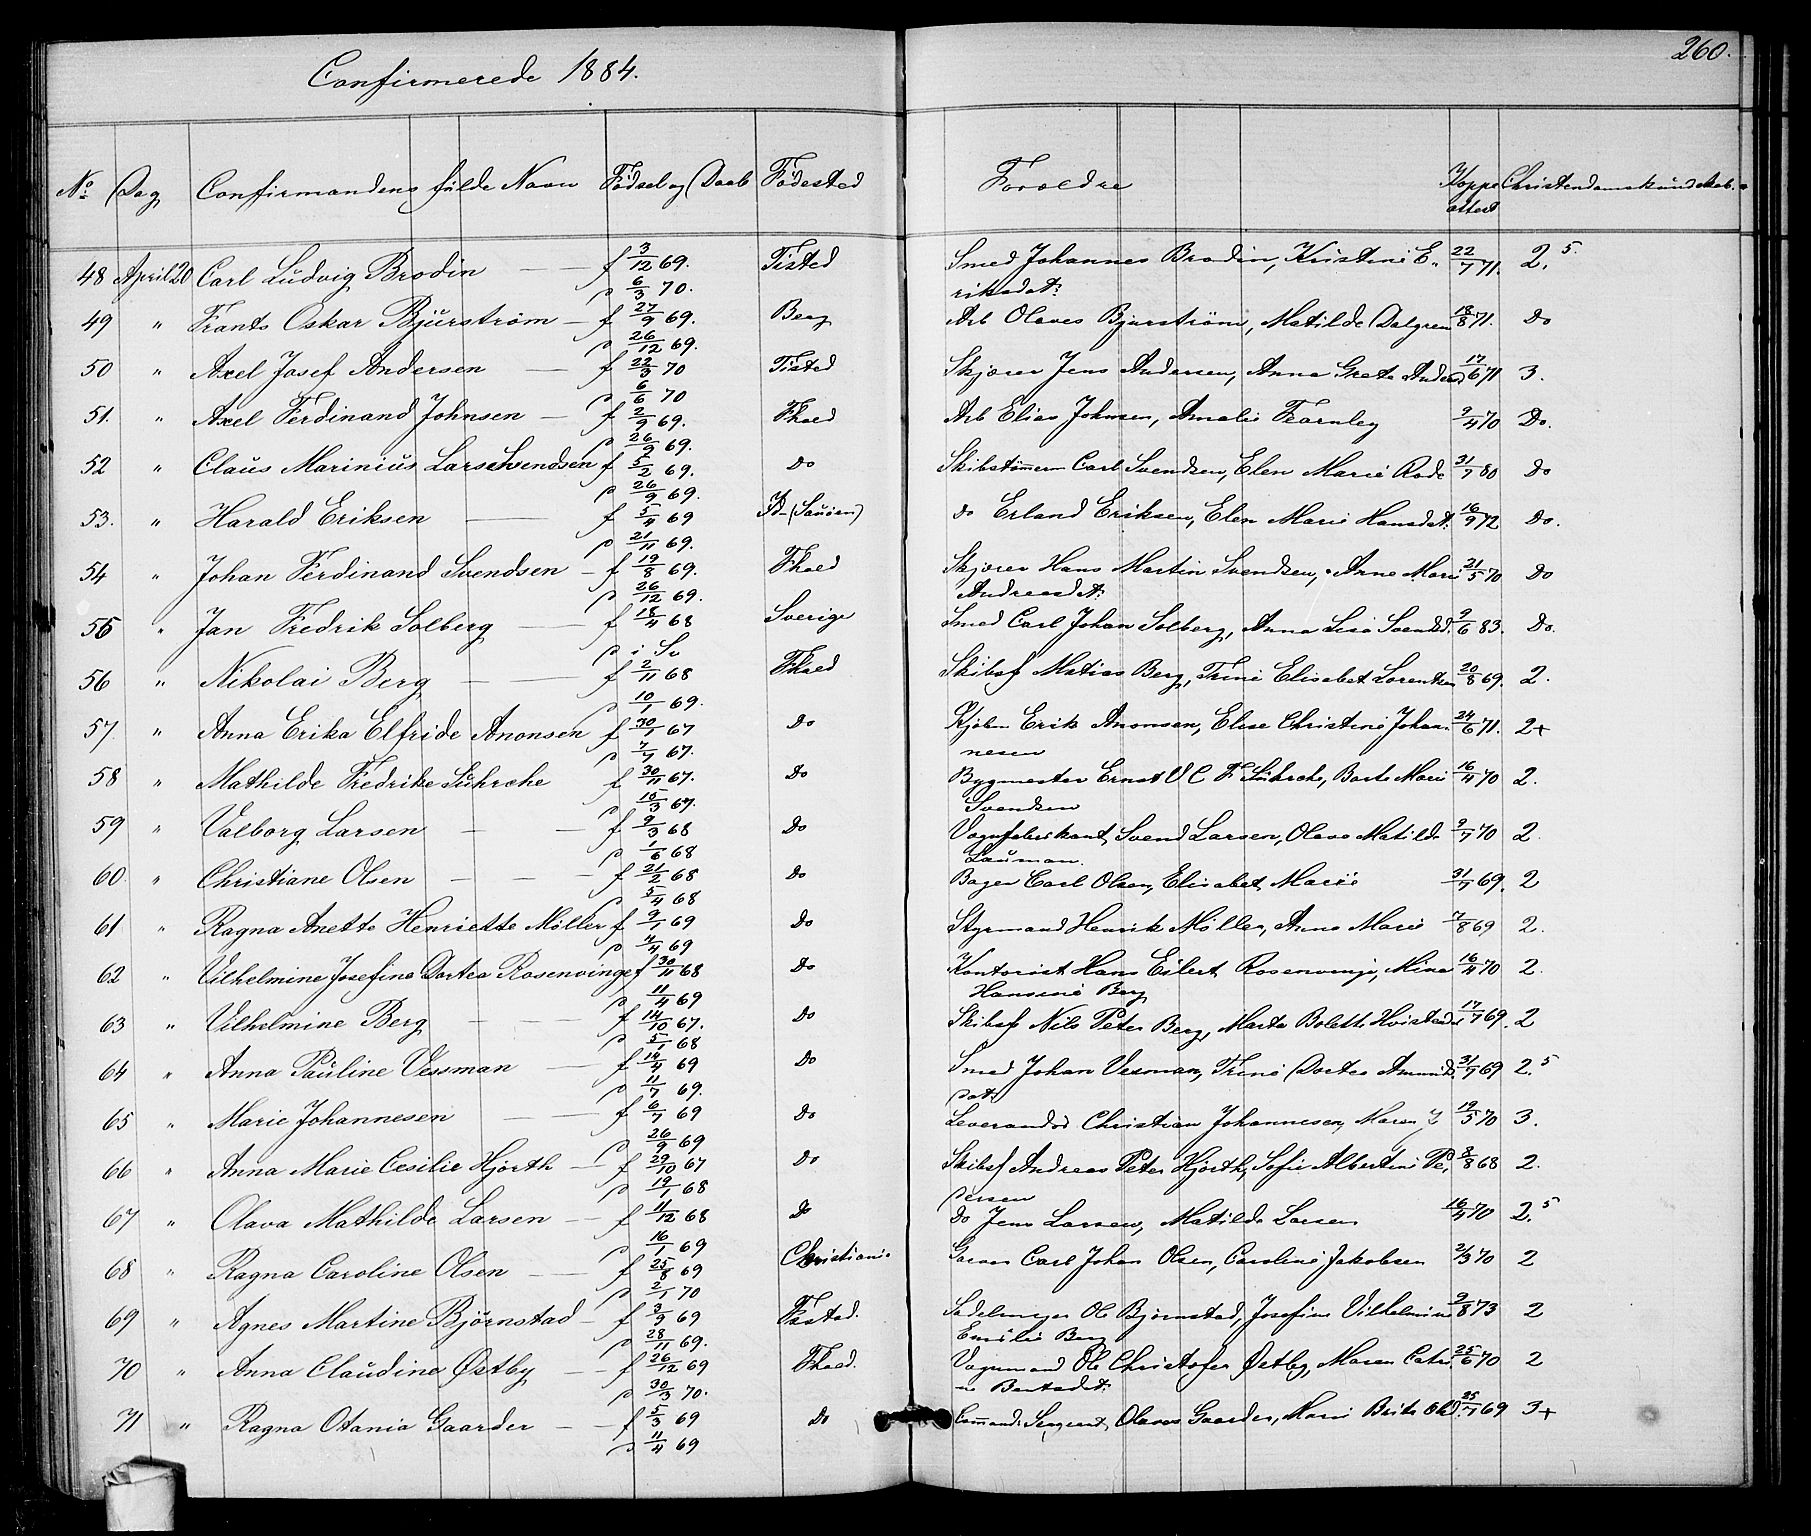 Confirmerede 1884.
260.
No Dag Confirmandens fulde Navn Fødsel og Daab Fødested Forældre Koppe attest Christendomskundskab.
48 April 20 Carl Ludvig Brodin f 3/12 69. Tisted Smed Johannes Brodin, Kristine E- 22/7 71. 2.5
d 6/3 70. riksdat:
49 " Frants Oskar Bjürstrøm f 27/9 69. Berg Arb Olaves Bjurstrøm, Matilde Dalgren 18/8 71. Do
d 26/12 69.
50 " Axel Josef Andersen f 22/3 70 Tisted Skjærer Jens Andersen, Anna Grete Anders 17/6 71 3.
d 6/6 70
51. " Axel Ferdinand Johnsen f 2/9 69. Fhald Arb Elias Johnsen, Amalie Fearnley 9/4 70 Do.
d 26/9 69.
52 " Claus Marinius Lars Svendsen f 5/2 69. Do Skibstømm Carl Svendsen, Elen Marie Rode 31/7 80 Do
d 26/9 69.
53. " Harald Eriksen f 5/4 69 Id (Sauøen) do Erland Eriksen, Elen Marie Hansdat. 16/9 72 Do.
d 21/11 69.
54 " Johan Ferdinand Svendsen f 19/8 69. Fhald Skjærer Hans Martin Svendsen, Anne Mari 21/5 70 Do
d 26/12 69. Andreasdt:
55 " Jan Fredrik Solberg f 18/4 68 Sverige Smed Carl Johan Solberg, Anna Lisa Svendsd. 9/6 83. Do.
d i Sv
56 " Nikolai Berg f 2/11 68 Fhald Skibsf Matias Berg, Trine Elisabet Lorentzen 20/8 69. 2.
d 10/1 69.
57. " Anna Erika Elfride Anonsen f 30/1 67 Do Kjøbm Erik Anonsen, Elise Christine Johan- 24/6 71. 2+
d 7/7 67. nesen
58 " Mathilde Fredrike Lührche f 30/11 67. Do Bygmester Ernst O C F Lührche, Berte Marie 16/4 70 2.
d 15/3 67. Svendsen
59 " Valborg Larsen f 9/3 68 Do Vognfabrikant Svend Larsen, Olava Matilde 9/7 70 2.
d 1/6 68 Lauman.
60. " Christiane Olsen f 21/2 68 Do Bager Carl Olsen, Elisabet Marie 31/7 69. 2
d 5/4 68
61 " Ragna Anette Henriette Møller f 9/1 69 Do Styrmand Henrik Møller, Anne Marie 7/8 69 2.
d 4/4 69
62 " Vilhelmine Josefine Dortea Rosenvinge f 30/11 68 Do Kontorist Hans Eilert Rosenvinge, Mina 16/4 70 2.
d 11/4 69 Hansine Berg
63 " Vilhelmine Berg f 14/10 67. Do Skibsf Nils Peter Berg, Marte Bolette Hvistendal 17/7 69. 2
d 5/1 68
64 " Anna Pauline Vessman f 14/4 69 Do Smed Johan Vesman, Trine Dortea Amunds 31/7 69 2.5
d 11/7 69. dat:
65 " Marie Johannesen f 6/7 69 Do Leverandør Christian Johannesen, Maren J 19/5 70 3.
d 26/9 69
66 " Anna Marie Cesilie Hjorth f 29/10 67 Do Skibsf Andreas Peter Hjorth, Sofie Albertine Pe, 3/8 68 2.
d 19/1 68 dersen
67 " Olava Mathilde Larsen f 11/12 68 Do do Jens Larsen, Matilde Larsen 16/4 70 2.5
d 16/1 69
68 " Ragna Caroline Olsen f 25/8 69 Christiania Garver Carl Johan Olsen, Caroline Jakobsen 2/3 70 2
d 2/1 70
69 " Agnes Martine Bjørnstad f 3/9 69 Fstad. Sadelmager Ole Bjørnstad, Josefine Vilhelmine 2/8 73 2
d 28/11 69. Emilie Berg
70 " Anna Claudine Østby f 26/12 69 Fhald. Vognmand Ole Christofer Østby, Maren Catri 25/6 70 2
d 30/3 70. ne Berntsdat:
71 " Ragna Otania Gaarder f 5/3 69 Do Command: Sergeant Olaves Gaarder, Marie Brite Olsd. 25/7 69 3+
d 11/4 69